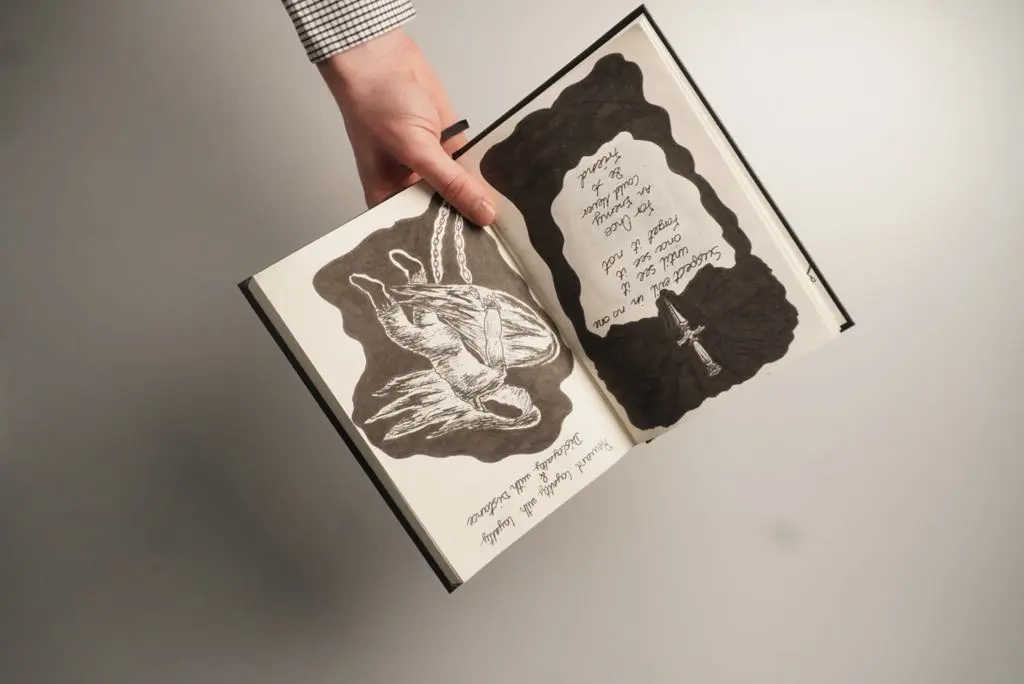 Suspect evil in no one
until see it
once see it
Forget it not
For Once
An Enemy
Could Never
Be to
Friend
Reward loyalty with loyalty
&
Disloyalty with Distance